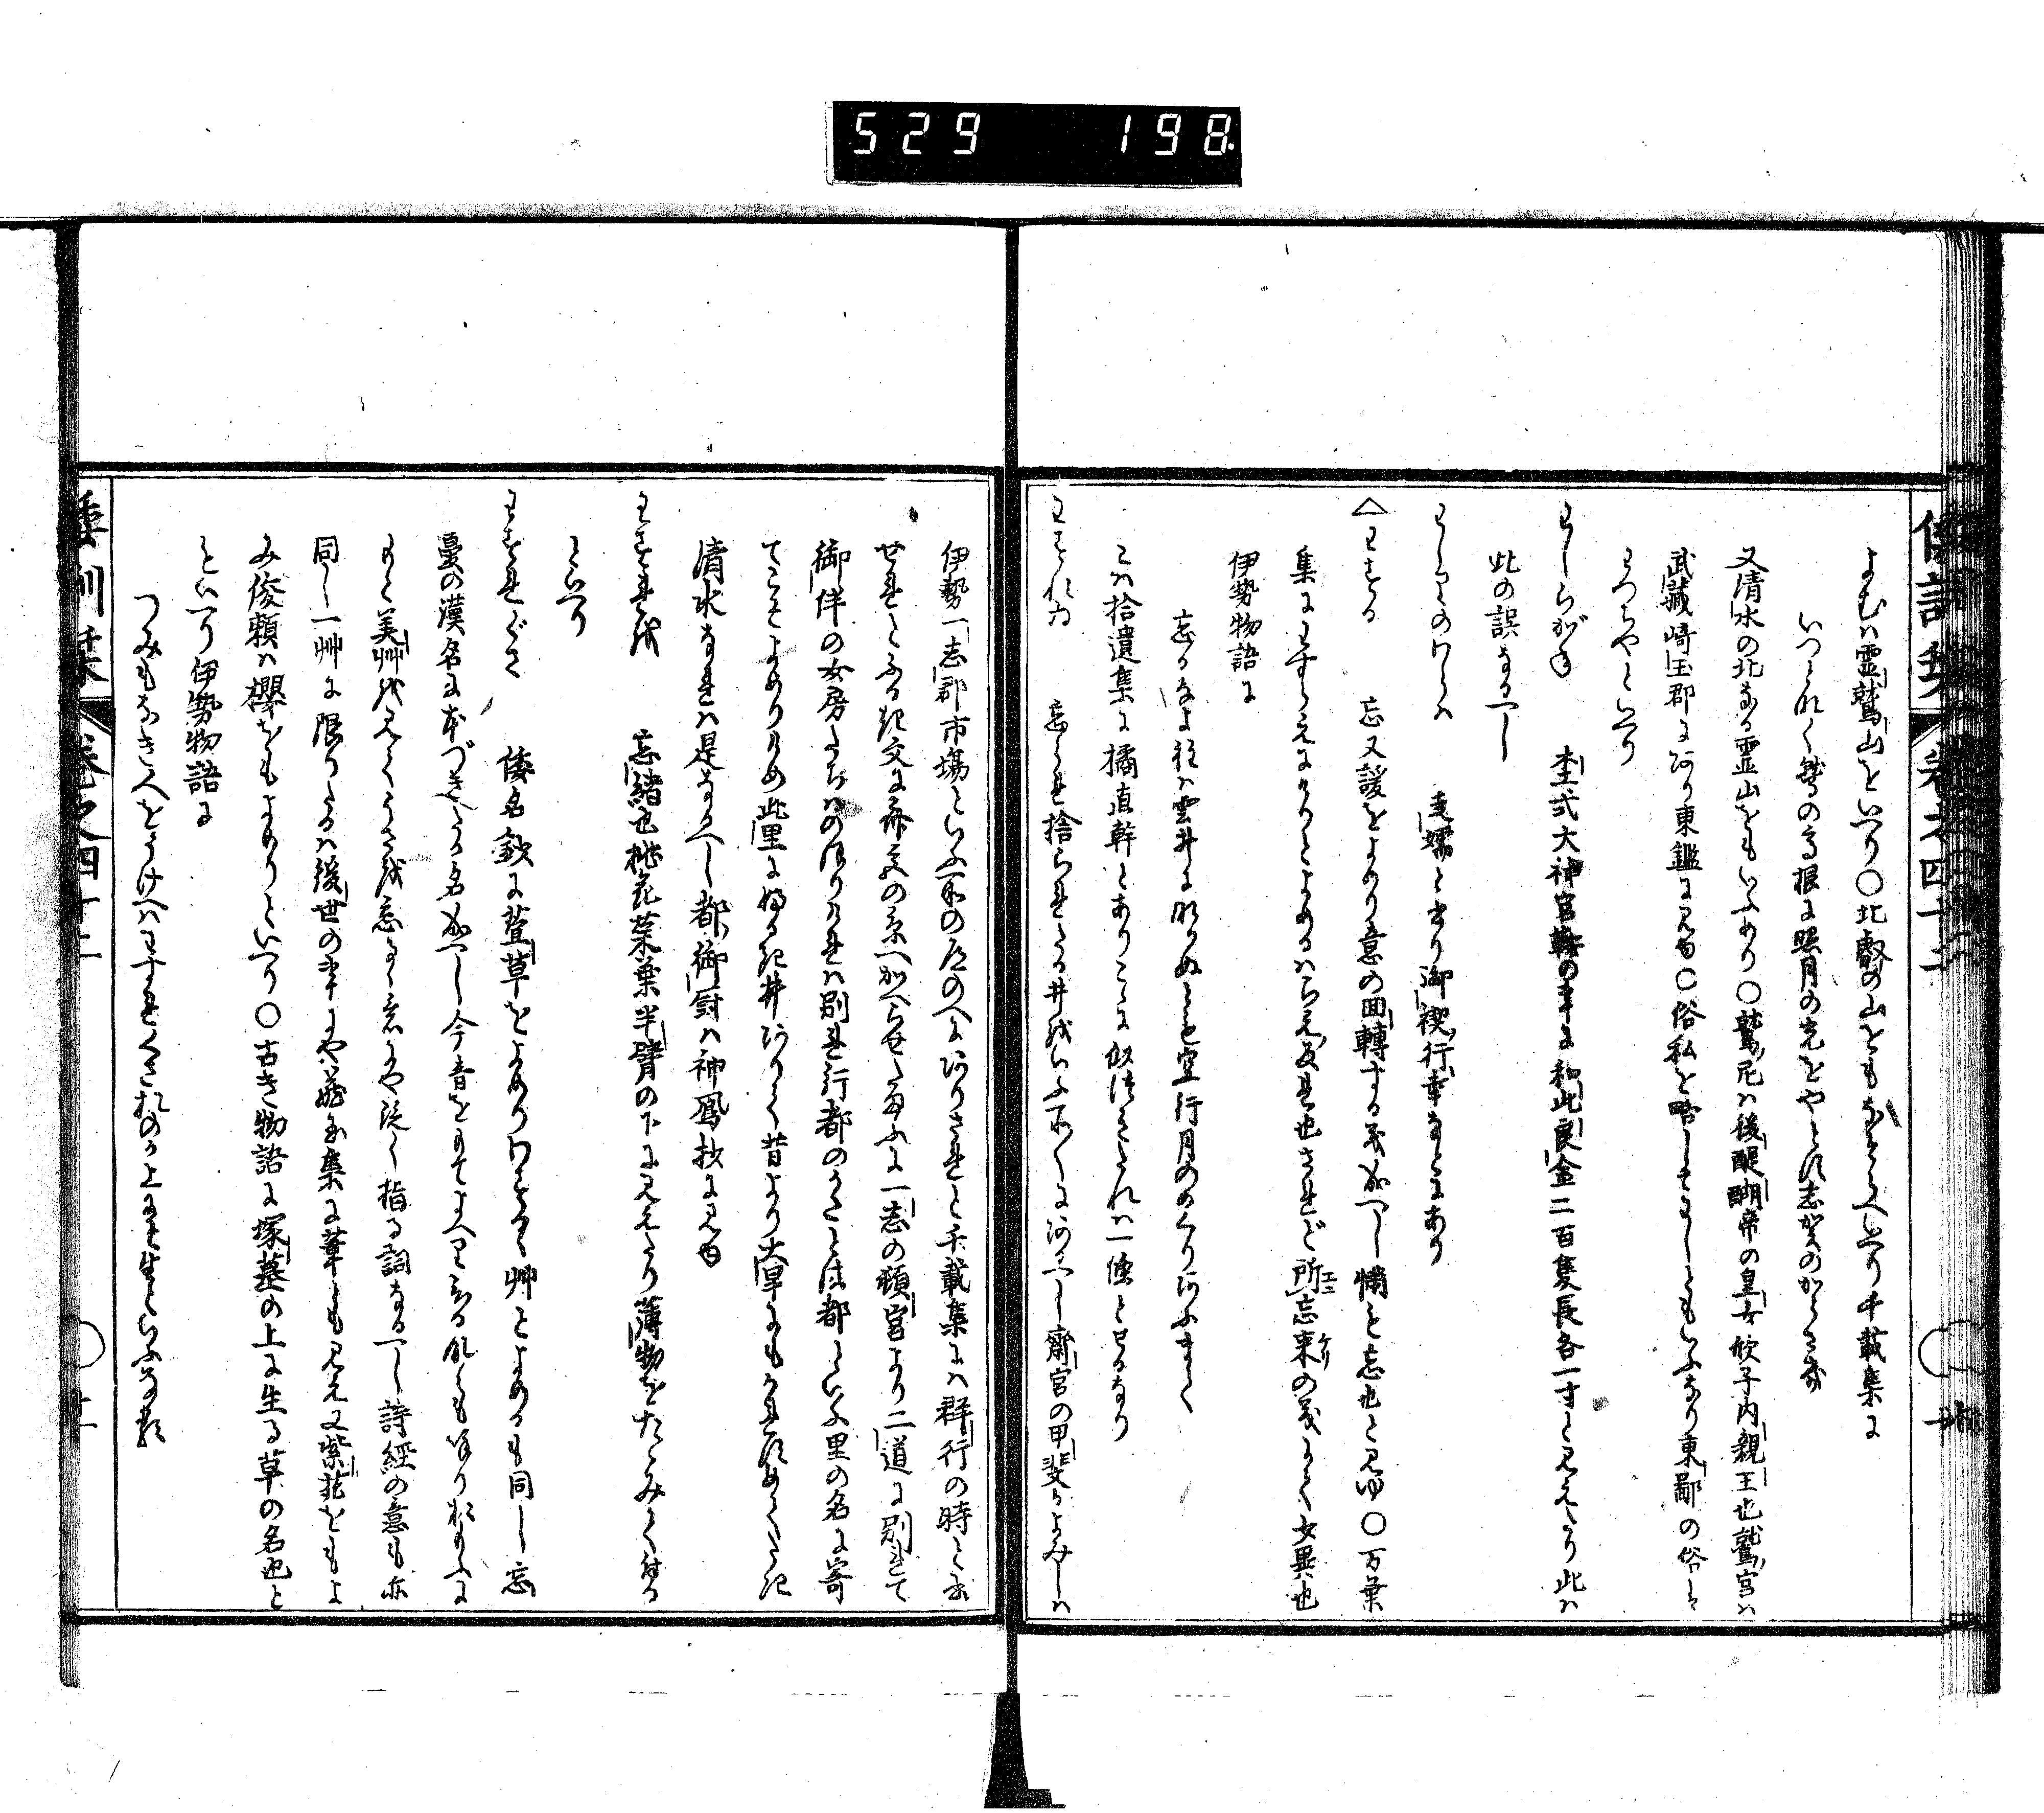 529 198.
倭訓栞 巻之四十二
よむハ霊鷲山をいへり〇北叡の山をもなそらへいへり千載集に
いつとなく鷲の高根に照月の光をやとす志賀のからさき
又清水の北なる霊山をもいふあり〇鷲尼ハ後醍醐帝の皇女欣子内親王也鷲宮ハ
武蔵崎玉郡にあり東鑑に見ゆ〇俗私を略してわしともいふなり東鄙の俗は
わつちやといへり
わしらがね 木工式大神宮鞍の事に和此良金二百隻長各一寸と見えたり此ハ
此の誤なるへし
わしりのわらハ 走孺と書り御禊行幸なとにあり
△わする 忘又諼をよめり意の回轉する義なるへし懶を忘也と見ゆ〇万葉
集にわすらえにけりとよめるハらえ反れ也されど所忘来の義にて少異也
伊勢物語に
忘るなよ程ハ雲井に成ぬとも空行月のめくりあふまて
こハ拾遺集に橘直幹とありことに似つきたれハ一條とせるなり
わすれ井 忘られ捨られたる井をいふ所々にあるへし齋宮の甲斐かよみしハ
伊勢一志郡市場といふ所の辺のへにありされと千載集にハ群行の時と書
せれとふるき文に帝京の京へかへらせたまふに一志の頓宮より二道に別れて
御伴の女房たちハのほりけれハ別れ行都のかたとは都といふ里の名に寄
てこそよめりけめ此里にふるき井ありて昔より大旱にもかれすめてたき
清水なれハ是なるへし都御厨ハ神鳳抄に見ゆ
わすれを 忘緒也桃花蘂葉半臂の下に見えたり薄物をたゝみて付る
といへり
わすれぐさ 倭名鈔に萱草をよめりわするゝ艸とよめるも同し忘
憂の漢名に本づきたる名なるへし今音をもてよへりされともゆり於もふに
もと美艸をみてうさを忘るゝ意にや廣く指る詞なるへし詩經の意も亦
同し一艸に限りたるハ後世の事にや藻塩集に葦とも見え又紫苑をもよ
み俊頼ハ櫻をもよめりといへり〇古き物語に塚墓の上に生る草の名也と
といへり伊勢物語に
つみもなき人をうけへハわすれくさおのか上にそ生といふなる
倭訓栞 巻之四十二